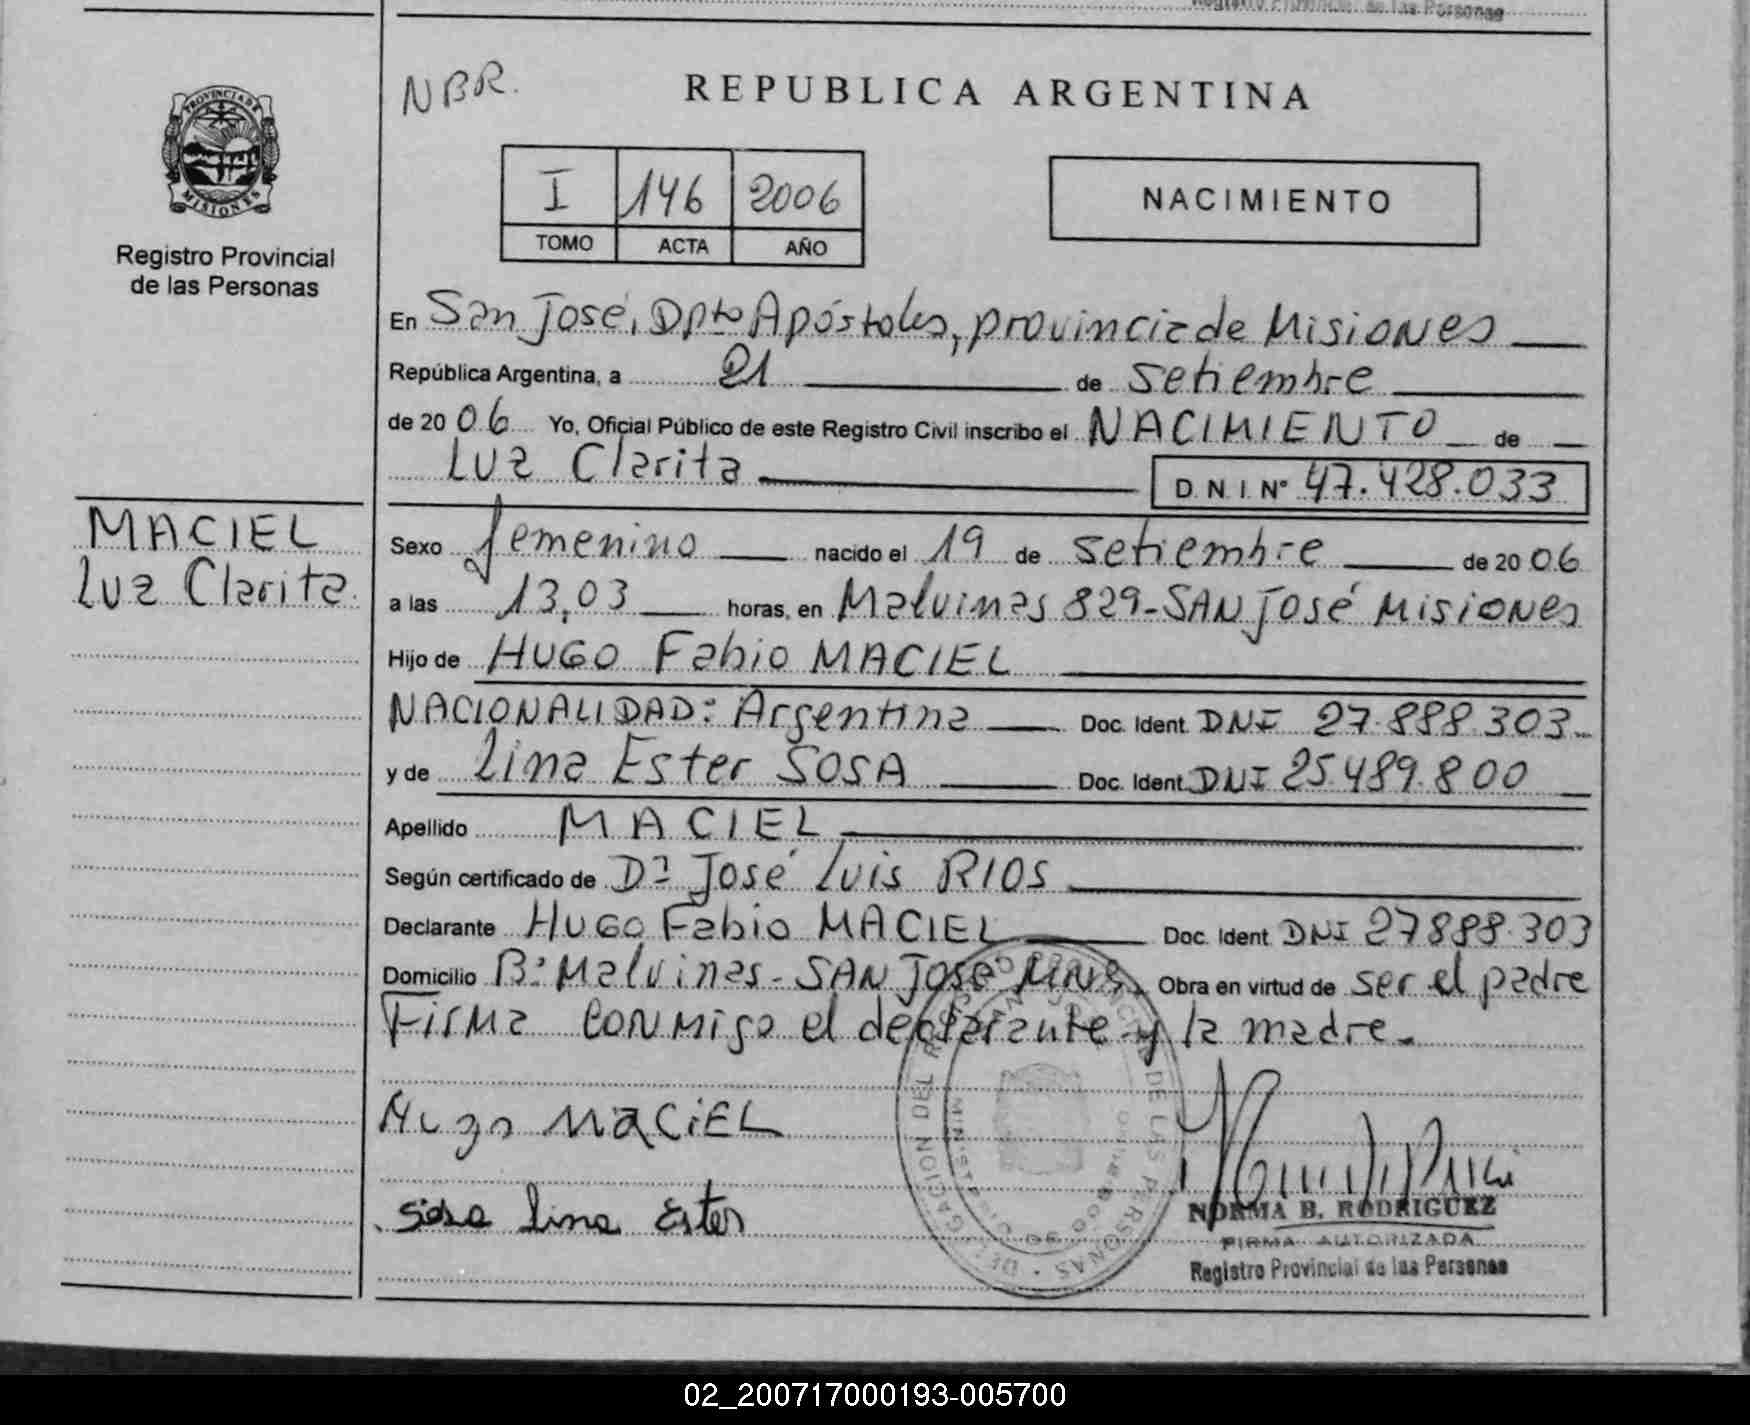 Registro Provincial de las Personas
NBR.
REPUBLICA ARGENTINA
PROVINCIA DE
MISIONES
I 146 2006
TOMO ACTA AÑO
NACIMIENTO
Registro Provincial
de las Personas
En San José, Dpto Apóstoles, provincia de Misiones
República Argentina, a 21 de Setiembre
de 2006 Yo, Oficial Público de este Registro Civil inscribo el NACIMIENTO de
Luz Clarita D.N.I. Nº 47.428.033
MACIEL
Luz Clarita.
Sexo femenino nacido el 19 de setiembre de 2006
a las 13,03 horas, en Malvinas 829-SAN José Misiones
Hijo de HUGO Fabio MACIEL
NACIONALIDAD: Argentina Doc. Ident. DNI 27.888.303
y de Lina Ester SOSA Doc. Ident. DNI 25.489.800
Apellido MACIEL
Según certificado de Dr José Luis RIOS
Declarante HUGO Fabio MACIEL Doc. Ident DNI 27888.303
Domicilio Bº Malvinas - SAN José MNES Obra en virtud de ser el padre
Firma conmigo el declarante y la madre.
Hugo MACIEL
Sosa Lina Ester
NORMA B. RODRIGUEZ
FIRMA AUTORIZADA
Registro Provincial de las Personas
02_200717000193-005700